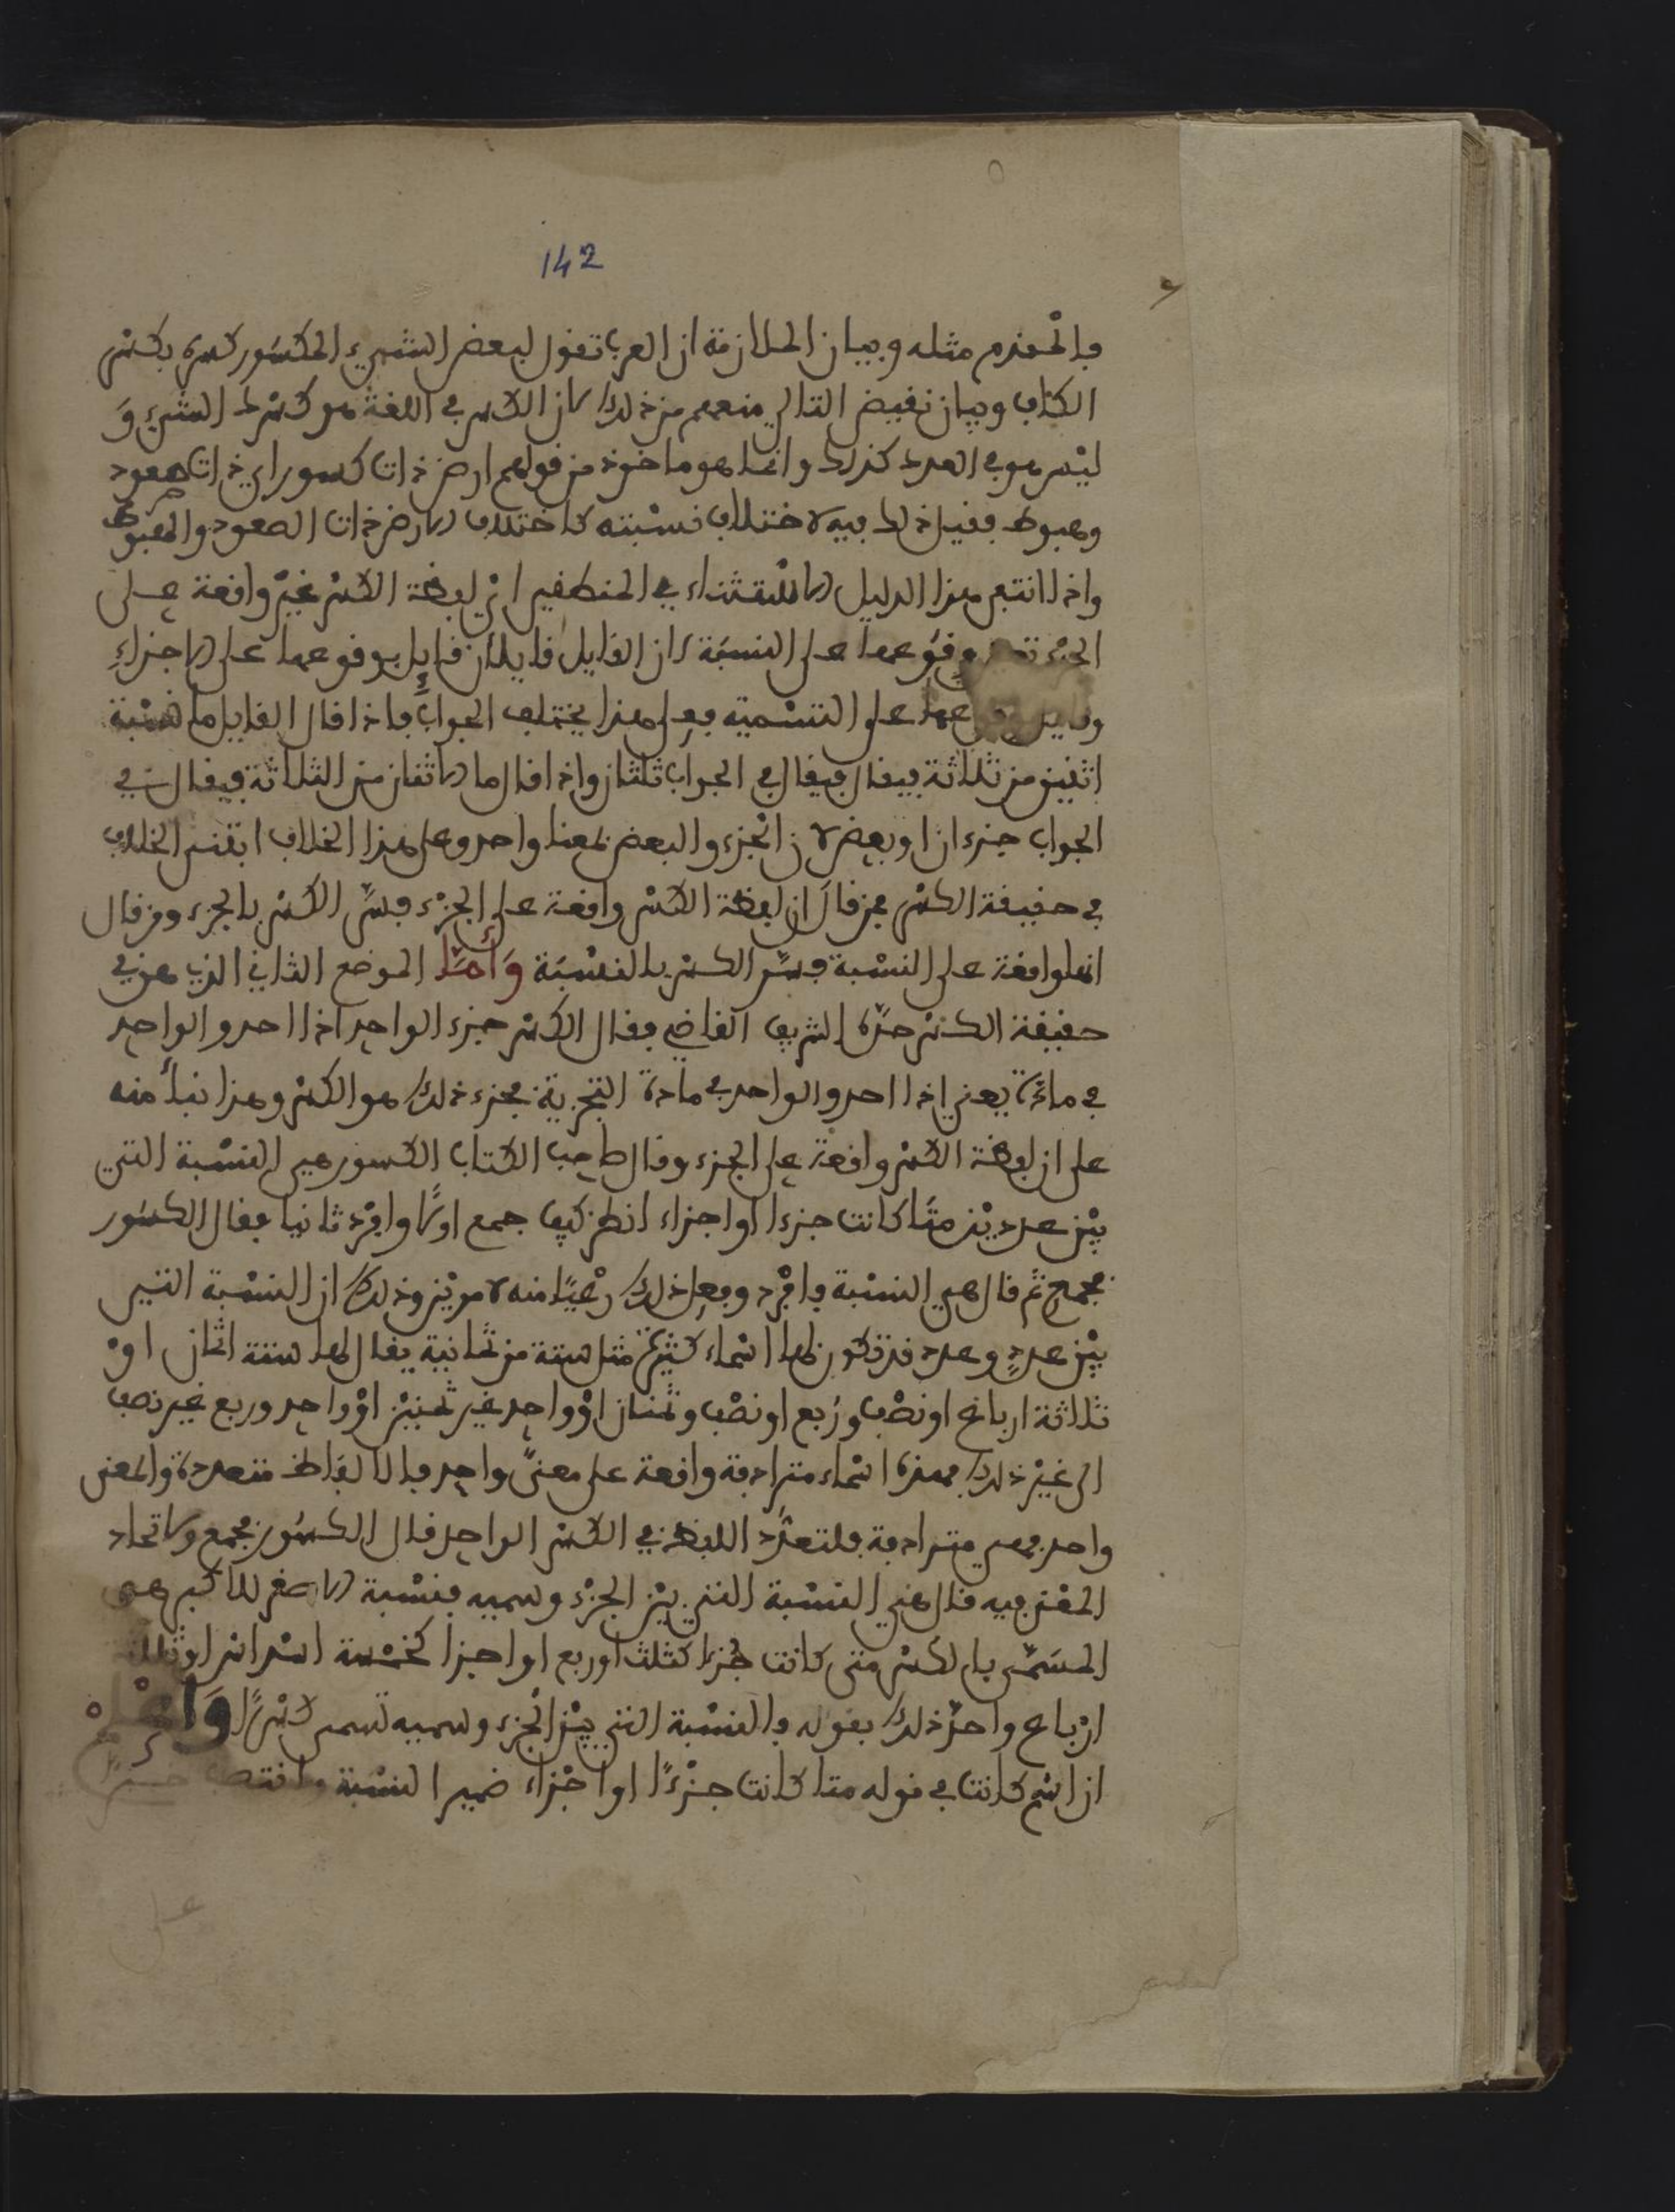 142
فالمقدم مثله وبيان الملازمة ان العرب تقول لبعض الشيء المكسور كسرة بكسر
الكاف وبيان نقيض التالي منعهم من ذلك لان الكسر في اللغة هو كسرك الشيء و
ليس هو في العدد كذلك وانما هو ماخوذ من قولهم ارض ذات كسور اي ذات صعود
وهبوط فقيل ذلك فيه لاختلاف نسبته كاختلاف الارض ذات الصعود والهبوط
واذا انتج هذا الدليل الاستثناء في المنطقين ان لفظة الكسر غير واقعة على
الجزء وقوعها على النسبة لان القايل قايلان قايل بوقوعها على الاجزاء
وقايل بوقوعها على التسمية فعلى هذا يختلف الجواب فاذا قال القايل ما نسبة
اثنين من ثلاثة فيقال فيقال في الجواب ثلثان واذا قال ما الاثنان من الثلاثة فيقال في
الجواب جزءان او بعض لان الجزء والبعض بمعنا واحد وعلى هذا الخلاف ابتني الخلاف
في حقيقة الكسر فمن قال ان لفظة الكسر واقعة على الجزء فسر الكسر بالجزء ومن قال
انها واقعة على النسبة فسر الكسر بالنسبة وأما الموضع الثاني الذي هو في
حقيقة الكسر حده الشريف القاضي فقال الكسر جزء الواحد اذا احد والواحد
في مادة يعني اذا احد والواحد في مادة التجزية فجزء ذلك هو الكسر وهذا بنا منه
على ان لفظة الكسر واقعة على الجزء وقال صاحب الكتاب الكسور هي النسبة التي
بين عددين متا كانت جزءا او اجزاء انظر كيف جمع اولا وافرد ثانيا فقال الكسور
فجمع ثم قال هي النسبة فافرد وفعل ذلك رعيا منه لامرين وذلك ان النسبة التي
بين عدد وعدد قد تكون لها اسماء كثيرة مثل ستة من ثمانية يقال لها ستة اثمان او
ثلاثة ارباع او نصف وربع او نصف وثمنان او واحد غير ثمنين او واحد وربع غير نصف
الى غير ذلك فهذه اسماء مترادفة واقعة على معنى واحد فالالفاظ متعددة والمعنى
واحد فهي مترادفة فلتعدد اللفظ في الكسر الواحد قال الكسور فجمع ولاتحاد
المعنى فيه قال هي النسبة التي بين الجزء وسميه فنسبة الاصغر للاكبر هي
المسمى بالكسر متى كانت جزءا كثلث او ربع او اجزا كخمسة اسداس او ثلاثة
ارباع واحد ذلك بقوله فالنسبة التي بين الجزء وسميه تسمى كسرا واعلم
ان اسم كانت في قوله متا كانت جزءا او اجزاء ضمير النسبة
على